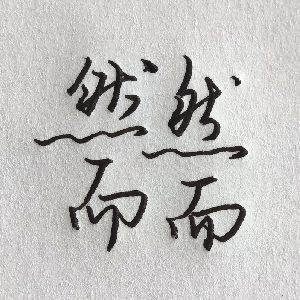 然而
然而